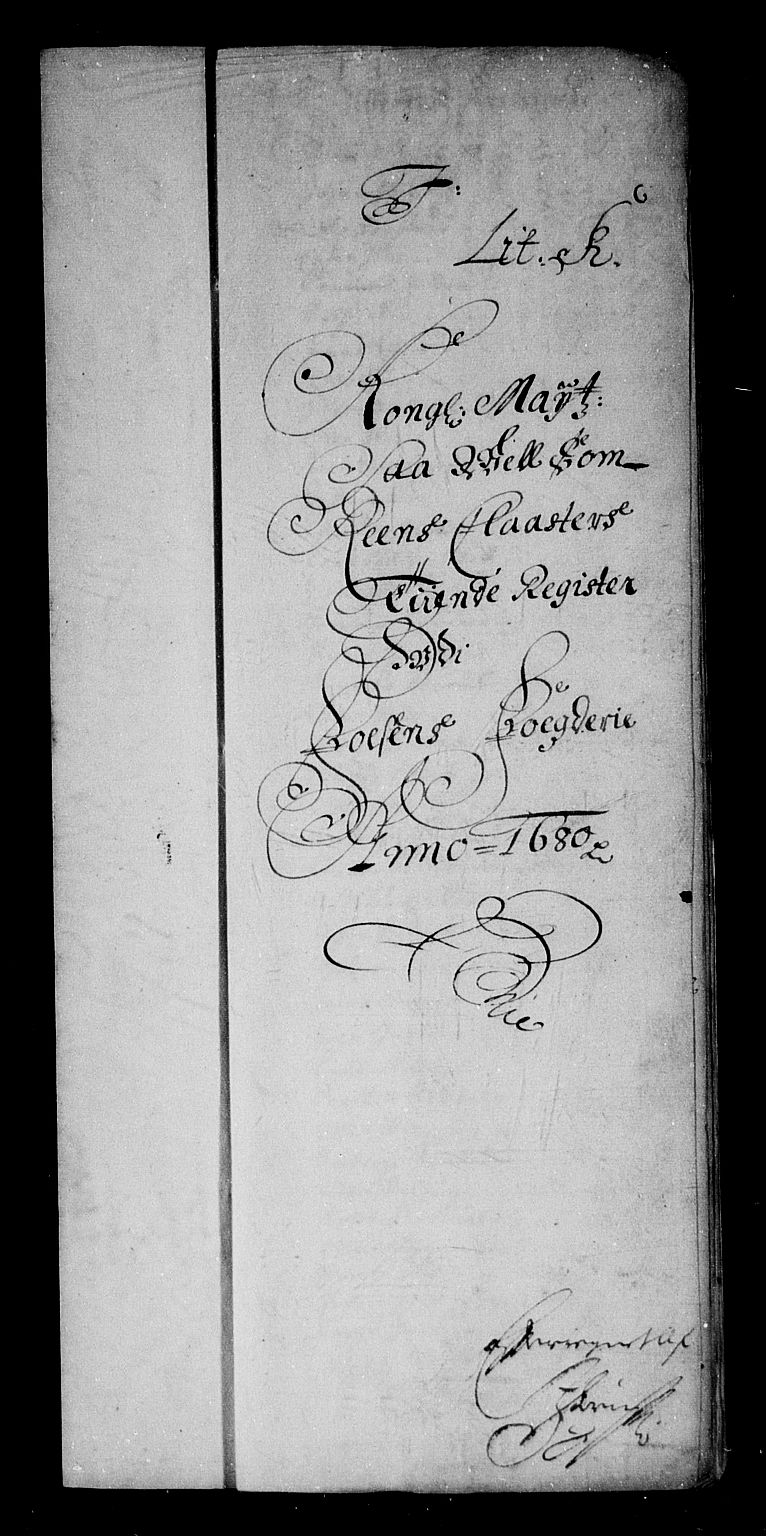 F:
Lit. K.
Kongl: Maÿtz:
Saa Well Som
Reens Claasters
Tiiende Register
Udi
Foesens Foegderie
Anno = 1680